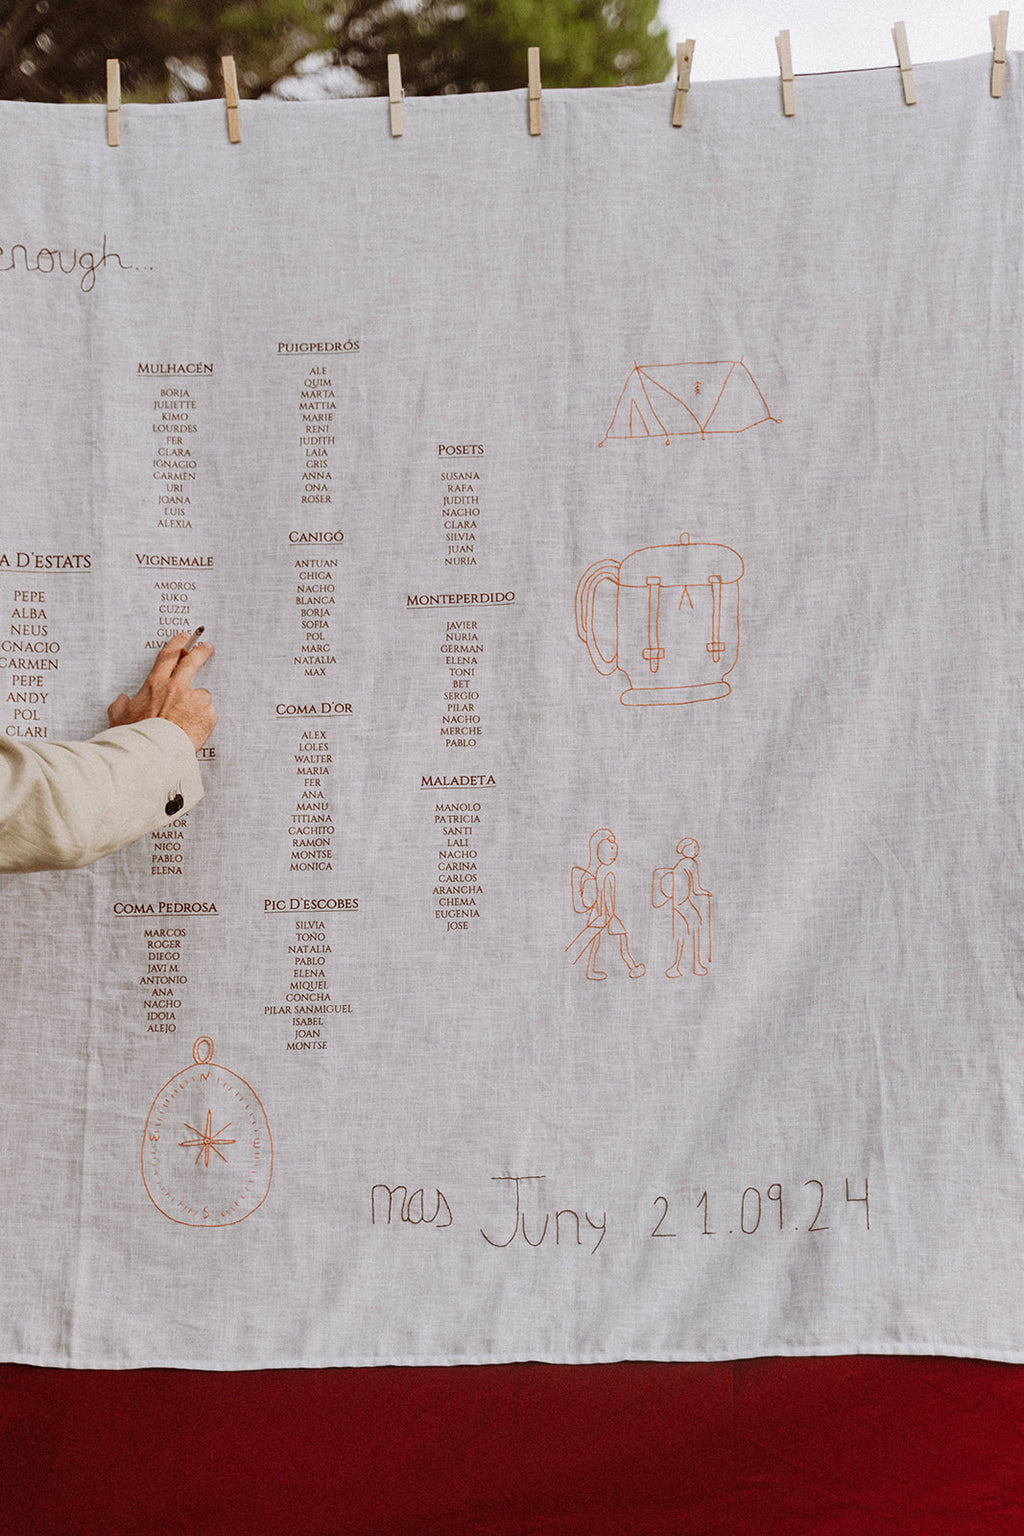 enough...
A D'ESTATS
PEPE
ALBA
NEUS
IGNACIO
CARMEN
PEPE
ANDY
POL
CLARI
MULHACÉN
BORJA
JULIETTE
KIMO
LOURDES
FER
CLARA
IGNACIO
CARMEN
URI
JOANA
LUIS
ALEXIA
VIGNEMALE
AMOROS
SUKO
CUZZI
LUCIA
MARIA
NICO
PABLO
ELENA
COMA PEDROSA
MARCOS
ROGER
DIEGO
JAVI M.
ANTONIO
ANA
NACHO
IDOIA
ALEJO
PUIGPEDRÓS
ALE
QUIM
MARTA
MATTIA
MARIE
RENI
JUDITH
LAIA
CRIS
ANNA
ONA
ROSER
CANIGÓ
ANTUAN
CHICA
NACHO
BLANCA
BORJA
SOFIA
POL
MARC
NATALIA
MAX
COMA D'OR
ALEX
LOLES
WALTER
MARIA
FER
ANA
MANU
TITIANA
CACHITO
RAMON
MONTSE
MONICA
PIC D'ESCOBES
SILVIA
TOÑO
NATALIA
PABLO
ELENA
MIQUEL
CONCHA
PILAR SANMIGUEL
ISABEL
JOAN
MONTSE
POSETS
SUSANA
RAFA
JUDITH
NACHO
CLARA
SILVIA
JUAN
NURIA
MONTEPERDIDO
JAVIER
NURIA
GERMAN
ELENA
TONI
BET
SERGIO
PILAR
NACHO
MERCHE
PABLO
MALADETA
MANOLO
PATRICIA
SANTI
LALI
NACHO
CARINA
CARLOS
ARANCHA
CHEMA
EUGENIA
JOSE
A
N
S
mas Juny 21.09.24